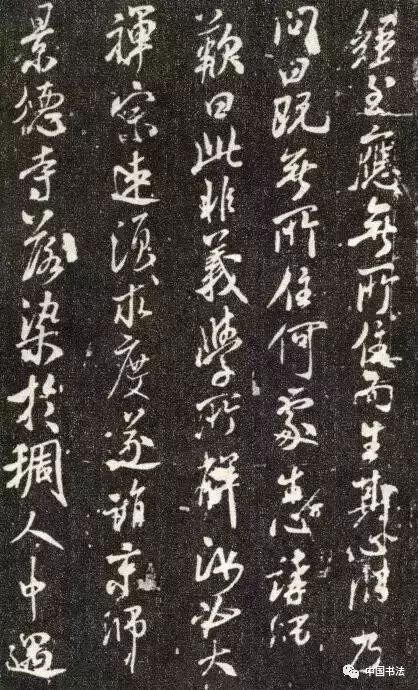 經至應無所住而生其心乃
問曰既無所住何處生心講
歎曰此非義學所解汝必大
禪宗速須求度遂詣京師
景德寺落染於稠人中遇
中国书法